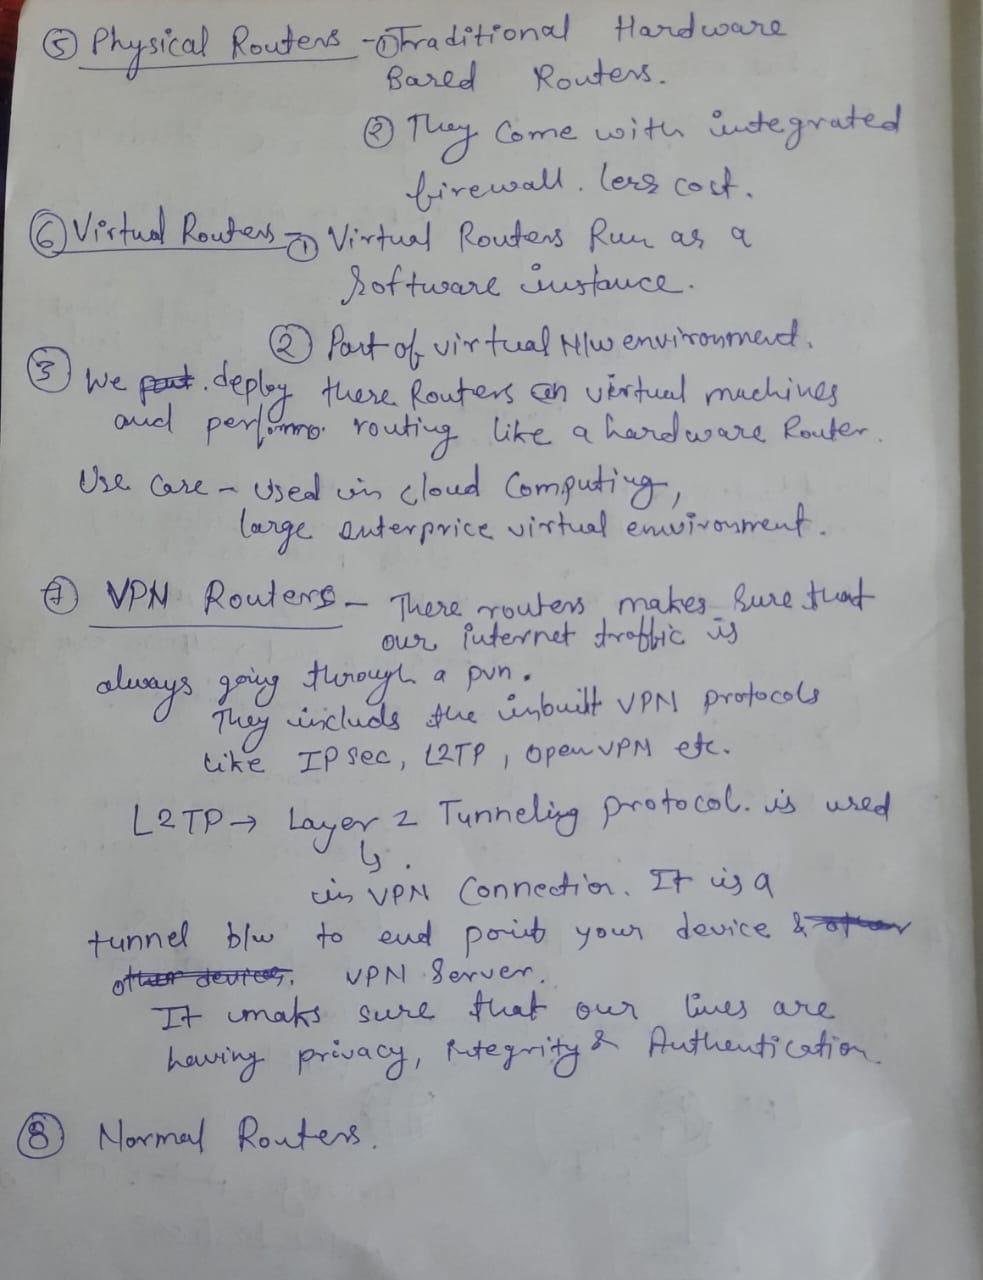 ⑤ Physical Routers - ① Traditional Hardware
Based Routers.
② They come with integrated
firewall. less cost.
⑥ Virtual Routers - ① Virtual Routers Run as a
Software instance.
② Part of virtual N/w environment.
③ We deploy these Routers on virtual machines
and performs routing like a hardware Router.
Use Case - Used in cloud Computing,
large enterprice virtual environment.
⑦ VPN Routers - These routers makes sure that
our internet traffic is
always going through a pvn.
They include the inbuilt VPN protocols
like IP sec, L2TP, open VPN etc.
L2TP → Layer 2 Tunneling protocol. is used
↳.
in VPN Connection. It is a
tunnel b/w to end point your device & other
other devices. VPN Server.
It maks sure that our lines are
having privacy, integrity & Authentication.
⑧ Normal Routers.